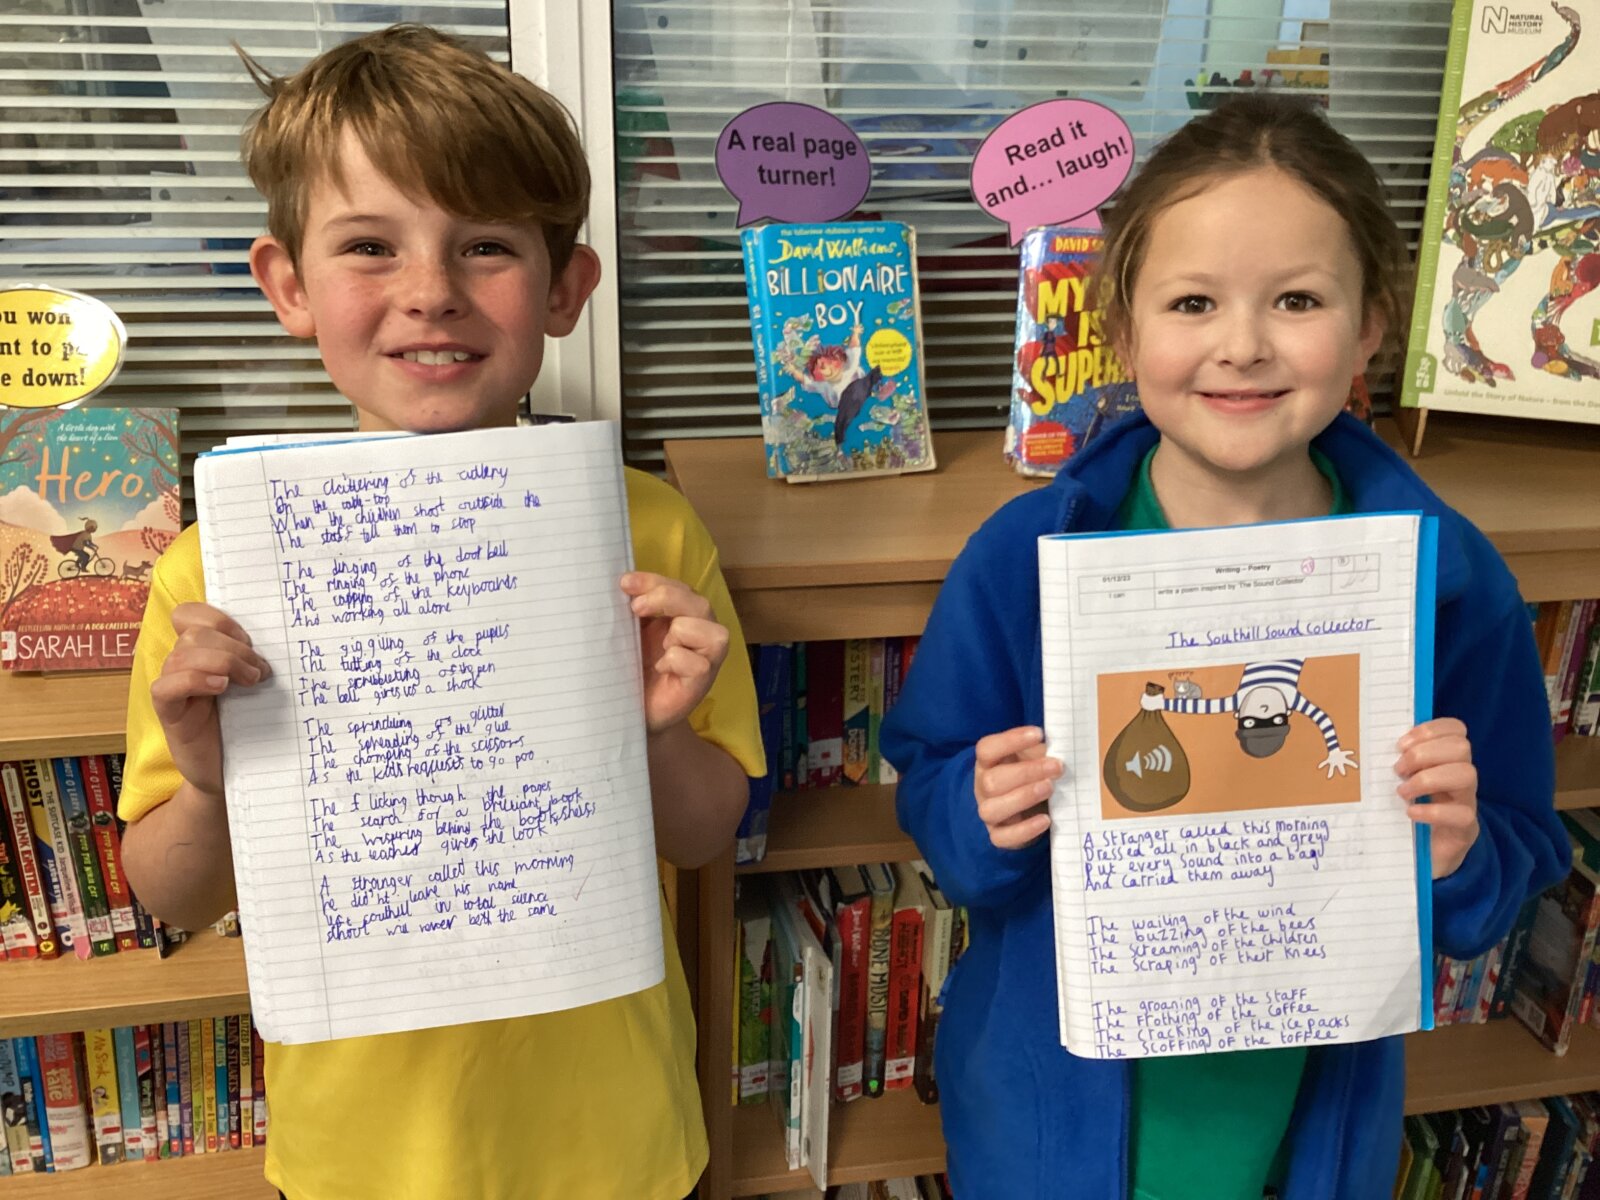 The clattering of the cutlery
On the table-top
When the children shoot outside the
The staff tell them to stop
The dinging of the door bell
The ringing of the phone
The tapping of the keyboards
And working all alone
The giggiling of the pupils
The tutting of the clock
The scribbleting of the pen
The bell gives us a shock
The sprindling of glitter
The spreading of the glue
The chomping of the scissors
As the kids requests to go poo
The flicking though the pages
The search for a brilliant book
The wispuring behing the bookshelfs
As the teacher gives the look
A stranger called this morning
he did'nt leave his name
left southill in total sience
will never be the same
01/12/23
Writing – Poetry
I can
write a poem inspired by 'The Sound Collector'
The Southill Sound Collector
A Stranger called this morning
Dressed all in black and grey
Put every Sound into a bag
And Carried them away
The wailing of the wind
The buzzing of the bees
The Screaming of the Children
The Scraping of their Knees
The groaning of the Staff
The frothing of the Coffee
The Cracking of the ice packs
The Scoffing of the toffee
A real page
turner!
Read it
and... laugh!
The hilarious children's novel by
David Walliams
BILLIONAIRE
BOY
DAVID
MY
IS
SUPER
NATURAL
HISTORY
MUSEUM
Unfold the Story of Nature – from the
ou won
nt to p
e down!
A little dog with
the heart of a lion
Hero
BESTSELLING AUTHOR OF
SARAH LEA
FRANK EINSTEIN